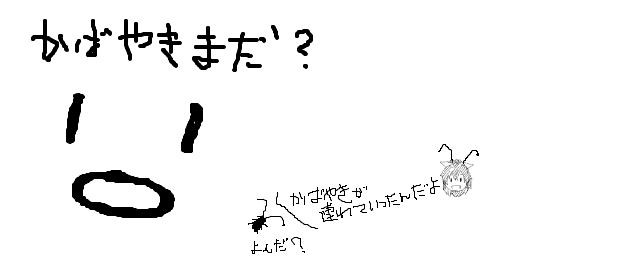 かばやきまだ?
かばやきが
連れていったんだよ
よんだ?